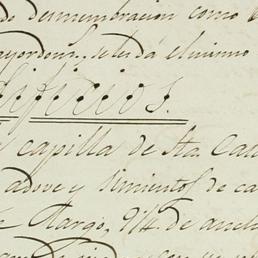 de desmembracion como
mayordomo, se les dá el mismo
dificios.
capilla de Sta. Cat
adove y simientos de ca
largo, 9 1/2 de anch